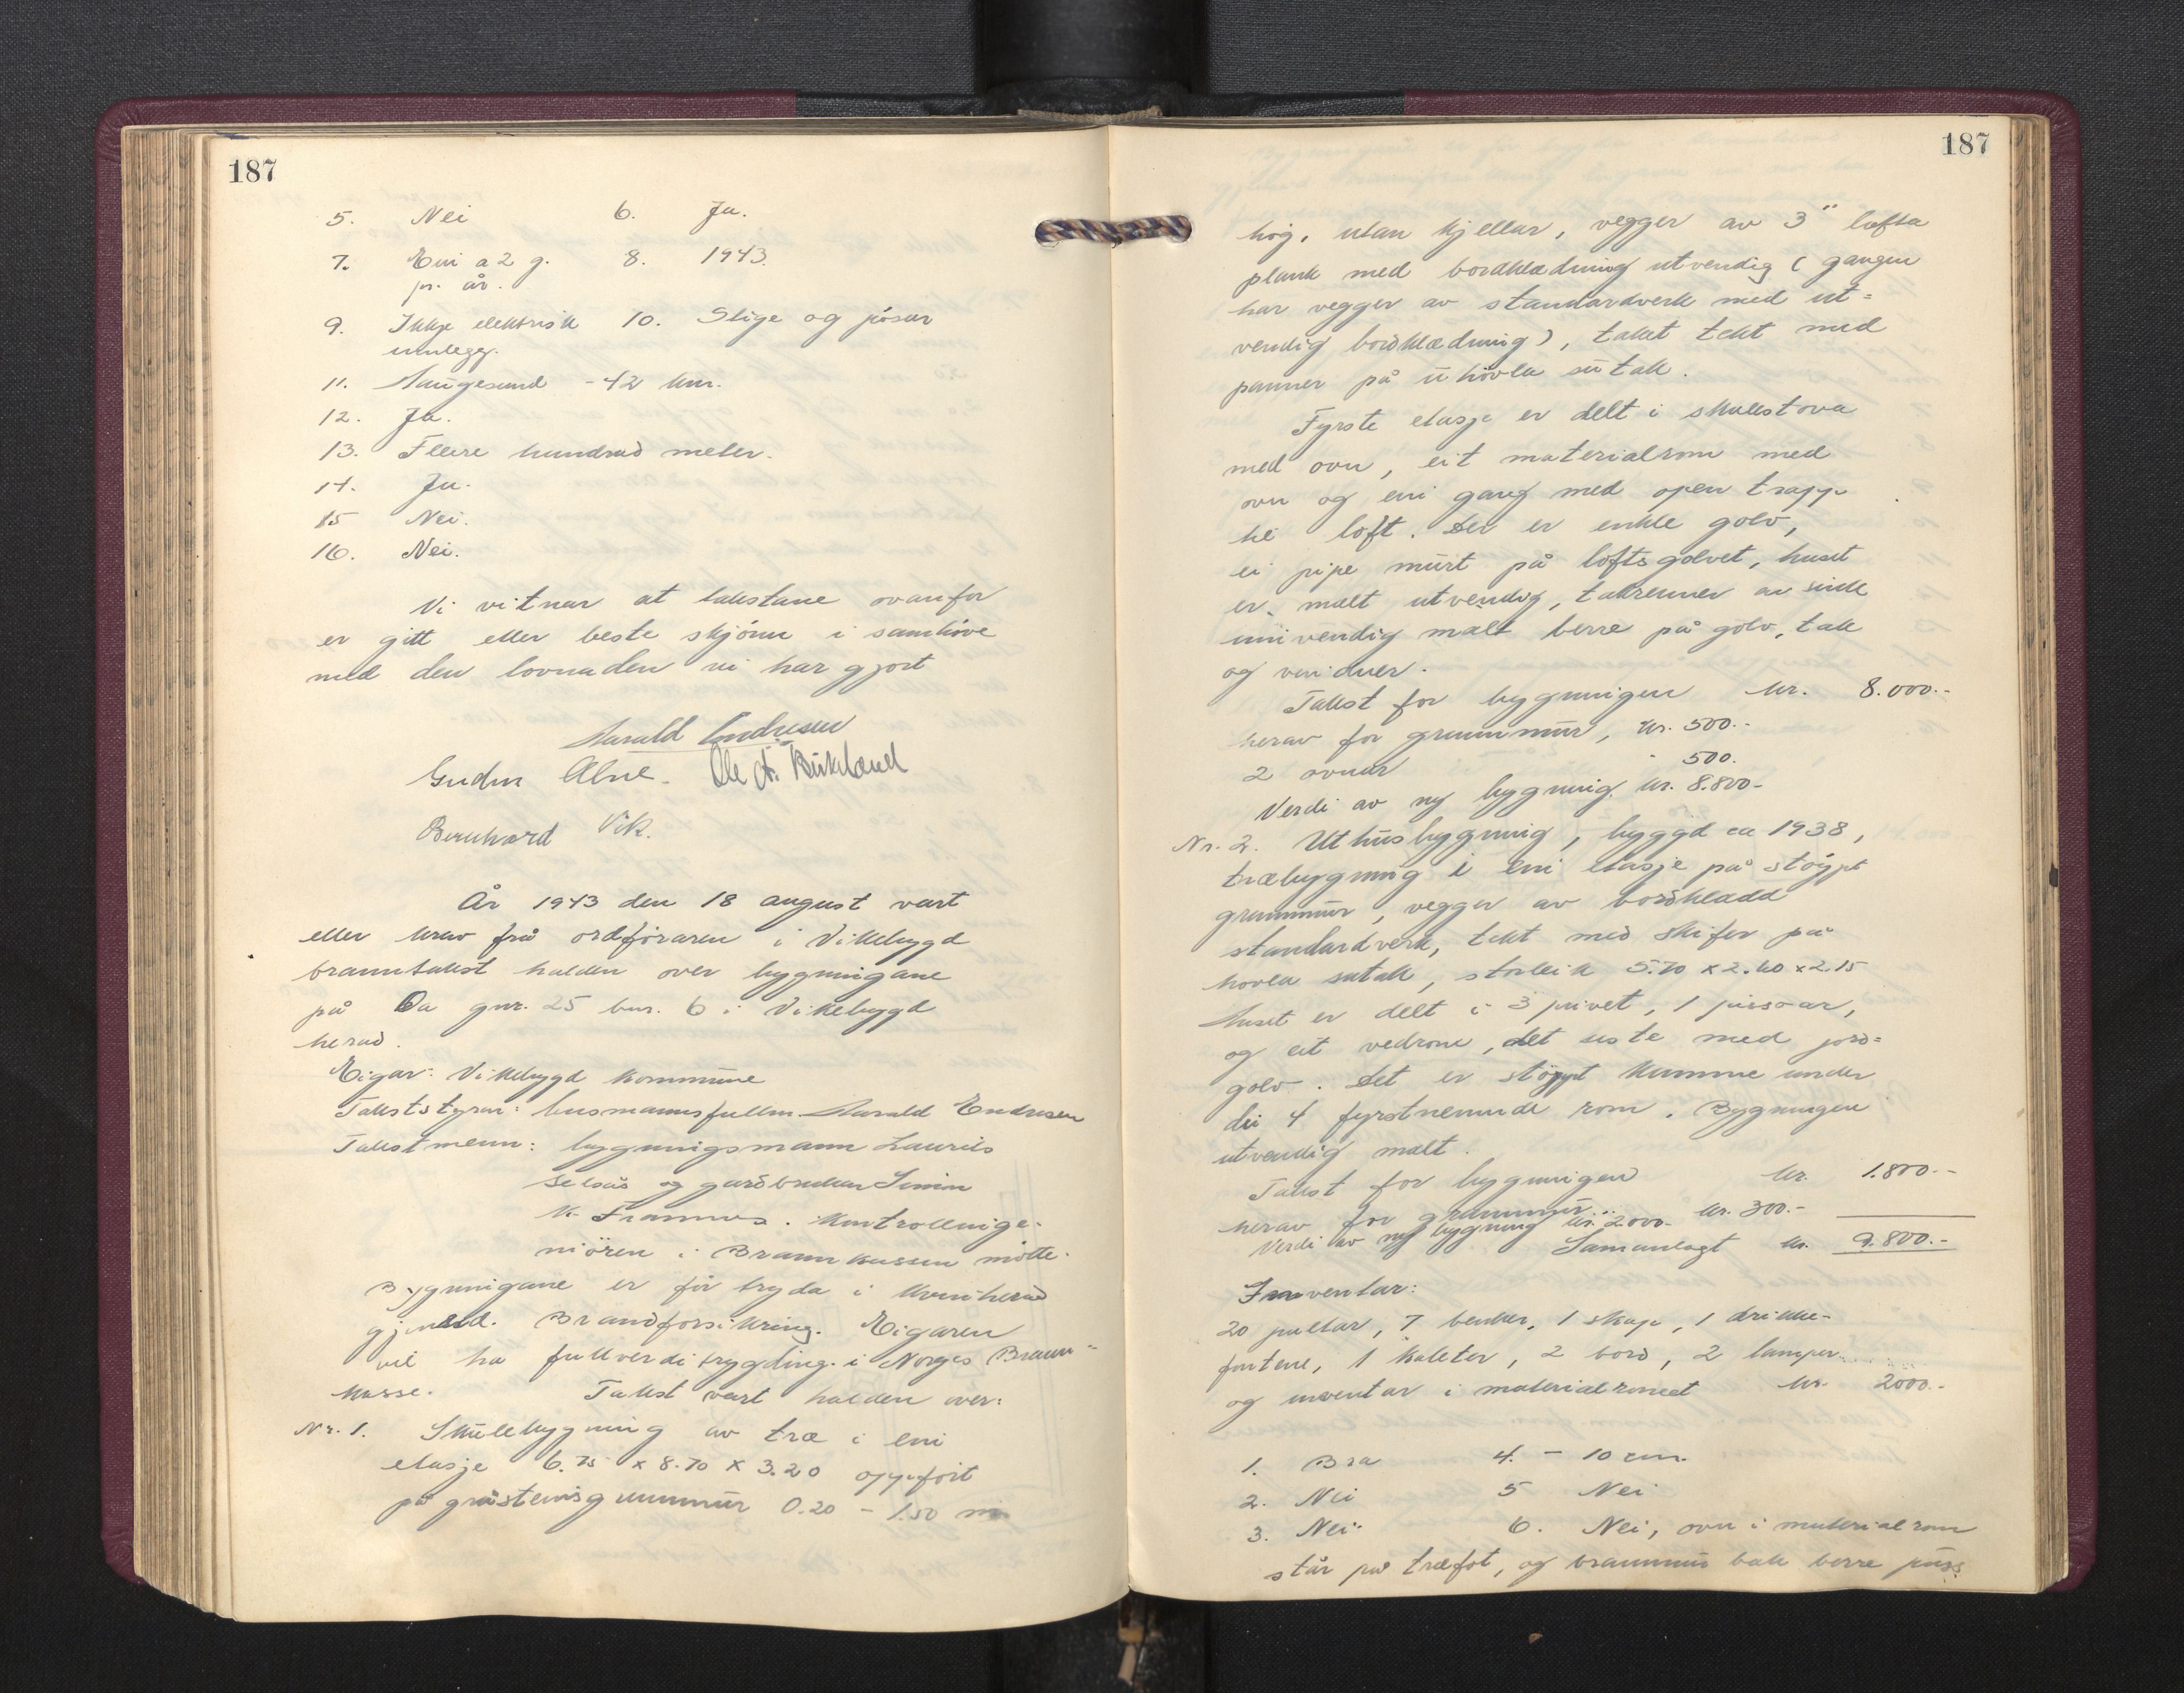 187
5. Nei 6. Ja.
7. Ein a 2 g. 8. 1943.
pr. år.
9. Ikkje elektrisk 10. Stige og pøsar
innlegg.
11. Haugesund - 42 km.
12. Ja.
13. Fleire hundrad meter.
14. Ja.
15 Nei.
16. Nei.
Vi vitnar at takstane ovanfor
er gitt etter beste skjønn i samhøve
med den lovnaden vi har gjort
Harald Endresen
Gudm Alne. Ole A. Birkeland
Bernhard Vik.
År 1943 den 18 august vart
etter krav frå ordføraren i Vikebygd
branntakst halden over bygningane
på Øa gnr. 25 bnr. 6 i Vikebygd
herad.
Eigar: Vikebygd kommune
Takststyrar: lensmannsfullm. Harald Endresen
Takstmenn: bygningsmann Laurits
Selsås og gardbrukar Simon
K. Framnes. Kontrollinge-
niøren i Brannkassen møtte.
Bygningane er før trygda i Kvinherad
gjensid. Brandforsikring. Eigaren
vil ha fullverditrygding i Norges Brann-
kasse. Takst vart halden over:
Nr. 1. Skulebygning av træ i ein
etasje 6.75 x 8.70 x 3.20 oppført
på gråsteinsgrunnmur 0.20 - 1.50 m
187
høg, utan kjellar, vegger av 3" lafta
plank med bordklædning utvendig (gangen
har vegger av standardverk med ut=
vendig bordklædning), taket tekt med
panner på uhøvla sutak.
Fyrste etasje er delt i skulestova
med ovn, eit materialrom med
ovn og ein gang med open trapp
til loft. Der er enkle golv,
ei pipe murt på loftsgolvet, huset
er malt utvendig, takrenner av sink
innvendig malt berre på golv, tak
og vinduer.
Takst for bygningen kr. 8.000.-
herav for grunnmur, kr. 500.-
2 ovnar " 500.
Verdi av ny bygning kr. 8.800-
Nr. 2. Uthusbygning, byggd ca 1938,
træbygning i ein etasje på støypt
grunnmur, vegger av bordkladd
standardverk, tekt med skifer på
høvla sutak, storleik 5.70 x 2.60 x 2.15
Huset er delt i 3 privet, 1 pissoar,
og eit vedrom, det siste med jord=
golv. Det er støypt kumme under
dei 4 fyrstnemnde rom. Bygningen
utvendig malt.
Takst for bygningen kr. 1.800.-
herav for grunnmur... kr. 300.-
Verdi av ny bygning kr. 2.000.-
Samanlagt kr. 9.800.-
Inventar:
20 pultar, 7 benker, 1 skap, 1 drikke-
fontene, 1 kateter, 2 bord, 2 lamper
og inventar i materialromet kr. 2000.-
1. Bra 4. - 10 cm.
2. Nei 5 Nei
3. Nei. 6. Nei, ovn i materialrom
står på træfot, og brannmur bak berre puss